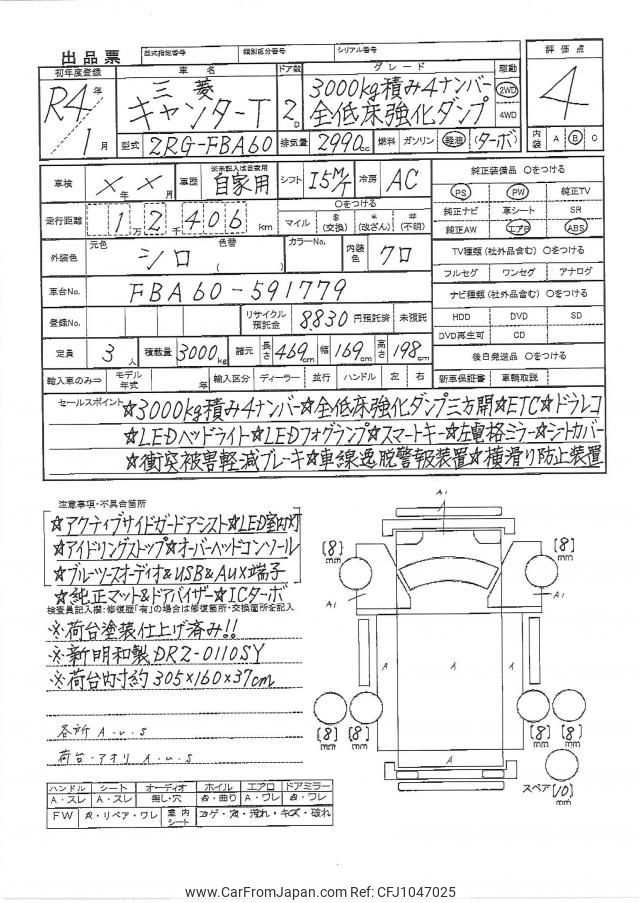 出品票 型式指定番号 類別区分番号 シリアル番号 評価点
初年度登録 車名 ドア数 グレード 駆動
R4年 三菱 2D 3000kg積み4ナンバー 2WD 4
1月 キャンターT 全低床強化ダンプ 4WD
型式 2RG-FBA60 排気量 2990cc 燃料 ガソリン 軽油 (ターボ) 内装 A B C
車検 ×年×月 車歴 ※未記入は自家用 自家用 シフト I5M/T 冷房 AC 純正装備品 〇をつける
走行距離 1万2千406km 〇をつける マイル $(交換) *(改ざん) #(不明)
PS PW 純正TV
純正ナビ 革シート SR
純正AW エアB ABS
外装色 元色 シロ 色替 ( ) カラーNo. 内装色 クロ
TV種類(社外品含む) 〇をつける
フルセグ ワンセグ アナログ
車台No. FBA60-591779
ナビ種類(社外品含む) 〇をつける
登録No. リサイクル預託金 8,830円預託済 未預託
HDD DVD SD
DVD再生可 CD
定員 3人 積載量 3000kg 諸元 長さ469cm 幅169cm 高さ198cm
後日発送品 〇をつける
輸入車のみ⇨ モデル年式 年 輸入区分 ディーラー 並行 ハンドル 左 右 新車保証書 車輌取説
セールスポイント ☆3000kg積み4ナンバー☆全低床強化ダンプ三方開☆ETC☆ドラレコ
☆LEDヘッドライト☆LEDフォグランプ☆スマートキー☆左電格ミラー☆シートカバー
☆衝突被害軽減ブレーキ☆車線逸脱警報装置☆横滑り防止装置
注意事項・不具合箇所
☆アクティブサイドガードアシスト☆LED室内灯
☆アイドリングストップ☆オーバーヘッドコンソール
☆ブルーツースオーディオ&USB&AUX端子
☆純正マット&ドアバイザー☆ICターボ
検査員記入欄:修復歴「有」の場合は修復箇所・交換箇所を記入
※荷台塗装仕上げ済み!!
※新明和製DR2-0110SY
※荷台内寸約305×160×37cm
各所 A.U.S
荷台・アオリ A.U.S
A1
[8]mm [8]mm
A1 A1
A A A
[8]mm [8]mm [8]mm [8]mm
スペア [10]mm
ハンドル シート オーディオ ホイル エアロ ドアミラー
A・スレ A・スレ 無し・穴 曲り A・ワレ ワレ
FW リペア・ワレ 室内シート コゲ・穴・汚れ・キズ・破れ
www.CarFromJapan.com Ref: CFJ1047025